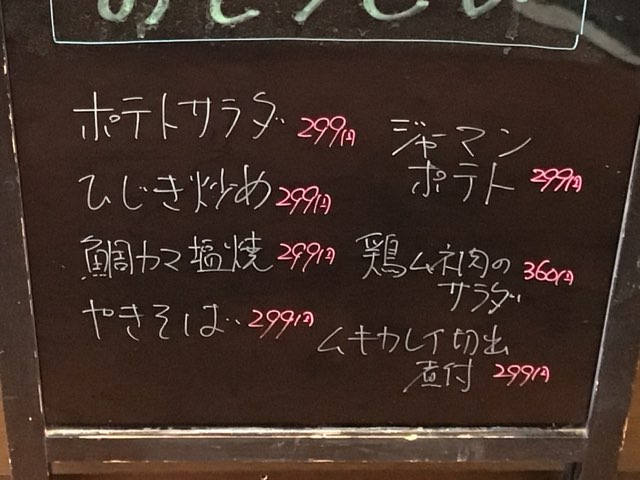 ポテトサラダ 299円
ひじき炒め 299円
鯛カマ塩焼 299円
やきそば 299円
ジャーマン
ポテト 299円
鶏ムネ肉の 360円
サラダ
ムキカレイ切出
煮付 299円